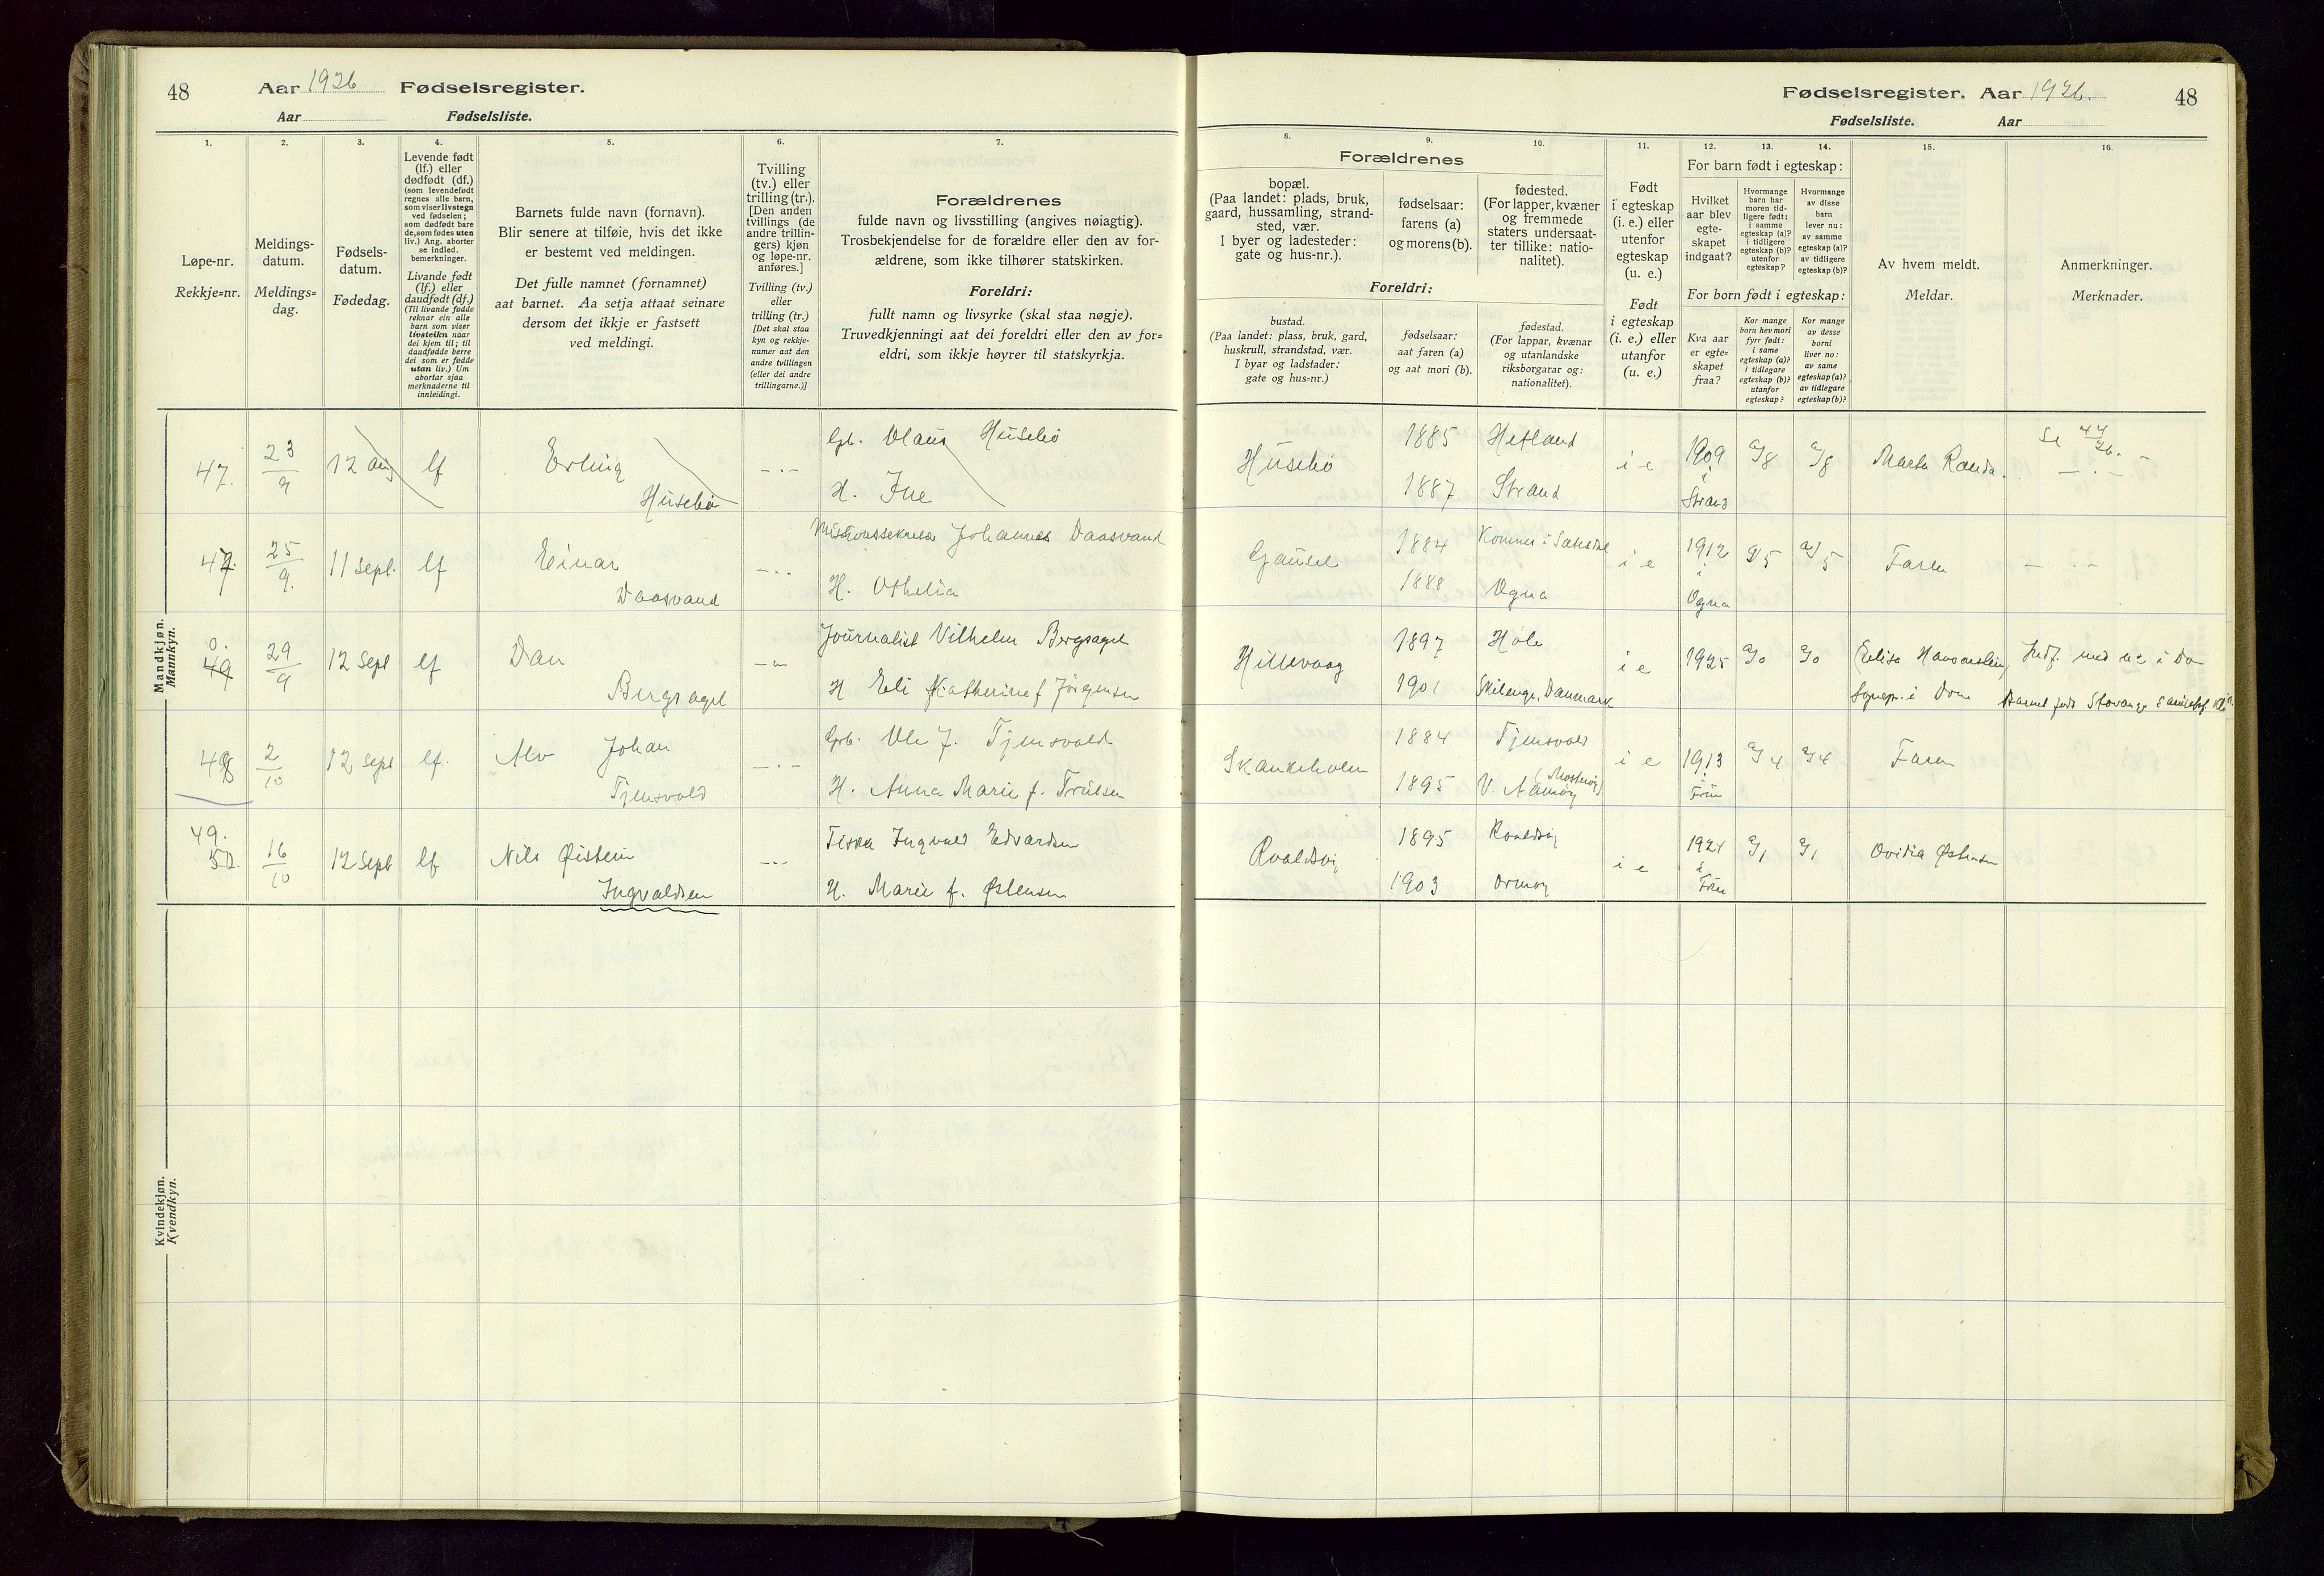 48 Aar 1926 Fødselsregister.
Aar Fødselsliste.
1. 2. 3. 4. 5. 6. 7.
Løpe-nr.
Rekkje-nr.
Meldings-
datum.
Meldings-
dag.
Fødsels-
datum.
Fødedag.
Levende født
(lf.) eller
dødfødt (df.)
(som levendefødt
regnes alle barn,
som viser livstegn
ved fødselen;
som dødfødt bare
de, som fødes uten
liv.) Ang. aborter
se indled.
bemerkninger.
Livande født
(lf.) eller
daudfødt (df.)
(Til livande fødde
reknar ein alle
born som viser
livsteikn naar
dei kjem til; til
daudfødde berre
dei som er fødde
utan liv.) Um
abortar sjaa
merknaderne til
innleidingi.
Barnets fulde navn (fornavn).
Blir senere at tilføie, hvis det ikke
er bestemt ved meldingen.
Det fulle namnet (fornamnet)
aat barnet. Aa setja attaat seinare
dersom det ikkje er fastsett
ved meldingi.
Tvilling
(tv.) eller
trilling (tr.).
[Den anden
tvillings (de
andre trillin-
gers) kjøn
og løpe-nr.
anføres.]
Tvilling (tv.)
eller
trilling (tr.)
[Det skal staa
kyn og rekkje-
numer aat den
andre tvillingen
(eller dei andre
trillingarne.)]
Forældrenes
fulde navn og livsstilling (angives nøiagtig).
Trosbekjendelse for de forældre eller den av for-
ældrene, som ikke tilhører statskirken.
Foreldri:
fullt namn og livsyrke (skal staa nøgje).
Truvedkjenningi aat dei foreldri eller den av for-
eldri, som ikkje høyrer til statskyrkja.
Mandkjøn.
Mannkyn.
47. 23/9 12 aug lf Erling Husebø -.- Gb. Olaus Husebø
H. Ine
47. 25/9. 11 sept. lf Einar Daasvand -.- Missionssekretær Johannes Daasvand
H. Othelia
0. 49 29/9 12 sept lf Dan Bergsagel Journalist Vilhelm Bergsagel
H Eli Katherine f Jörgensen
48 2/10 12 sept lf. Alv Johan Tjensvold -.- Gb. Ole J. Tjensvold
H. Anna Marie f. Trulsen
49. 50. 16/10 12 sept lf Nils Øistein Ingvaldsen -.- Fisker Ingvald Edvardsen
H. Marie f. Østensen
Kvindekjøn.
Kvendkyn.
Fødselsregister. Aar 1926. 48
Fødselsliste. Aar
8. 9. 10. 11. 12. 13. 14. 15. 16.
Forældrenes
bopæl.
(Paa landet: plads, bruk,
gaard, hussamling, strand-
sted, vær.
I byer og ladesteder:
gate og hus-nr.).
fødselsaar:
farens (a)
og morens (b).
fødested.
(For lapper, kvæner
og fremmede
staters undersaat-
ter tillike: natio-
nalitet).
Foreldri:
bustad.
(Paa landet: plass, bruk, gard,
huskrull, strandstad, vær.
I byar og ladstader:
gate og hus-nr.)
fødselsaar:
aat faren (a)
og aat mori (b).
fødestad.
(For lappar, kvænar
og utanlandske
riksborgarar og:
nationalitet).
Født
i egteskap
(i. e.) eller
utenfor
egteskap
(u. e.)
Født
i egteskap
(i. e.) eller
utanfor
(u. e.)
For barn født i egteskap:
Hvilket
aar blev
egte-
skapet
indgaat?
Hvormange
barn har
moren tid-
ligere født:
i samme
egteskap (a)?
i tidligere
egteskap (b)?
utenfor
egteskap?
Hvormange
av disse
barn
lever nu:
av samme
egteskap (a)?
av tidligere
egteskap (b)?
For born født i egteskap:
Kva aar
er egte-
skapet
fraa?
Kor mange
born hev mori
fyrr født:
i same
egteskap (a)?
i tidlegare
egteskap (b)?
utanfor
egteskap?
Kor mange
av desse
borni
liver no:
av same
egteskap (a)?
av tidlegare
egteskap (b)?
Av hvem meldt.
Meldar.
Anmerkninger.
Merknader.
Husebø 1885 Hetland i e 1909 i Strand a/8 a/8 Marta Se 44/26.
1887 Strand
Gausel 1884 i Sætesdal i e 1912 i Ogna a/5 a/5 Faren
1888 Ogna
Hillevaag 1897 Høle i e 1925 a/0 a/0
1901 Danmark
Skankeholen 1884 Tjensvold i e 1913 a/4 a/4 Faren
1895 V. Aamøy (Mosterøy)
Roaldsøy 1895 Roaldsøy i e 1924 a/1 a/1 Ovidia Østensen
1903 Ormøy